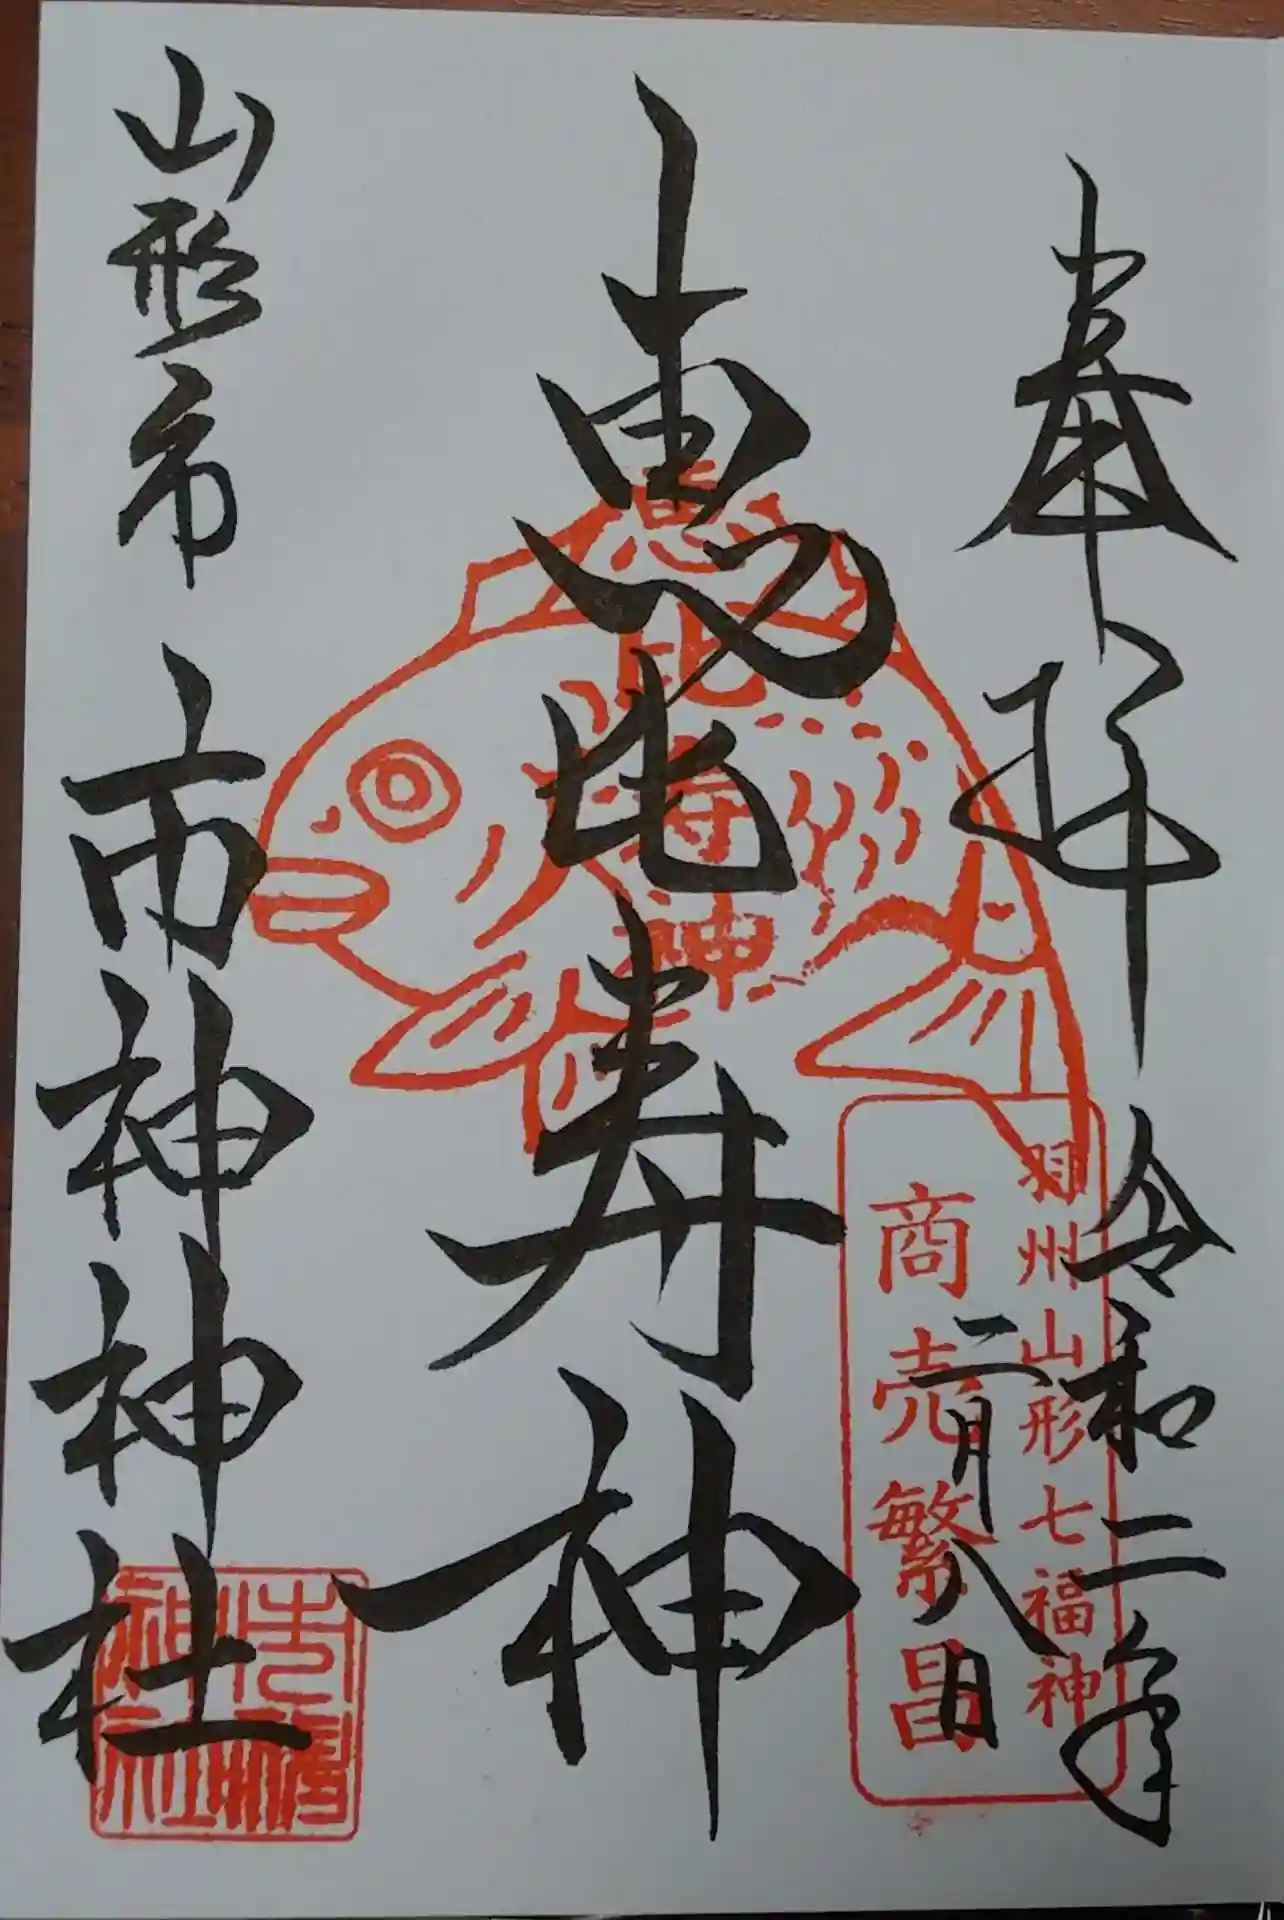 奉拝
令和二年
二月八日
羽州山形七福神
商売繁昌
恵比寿神
恵比寿神
山形市
市神神社
市神神社